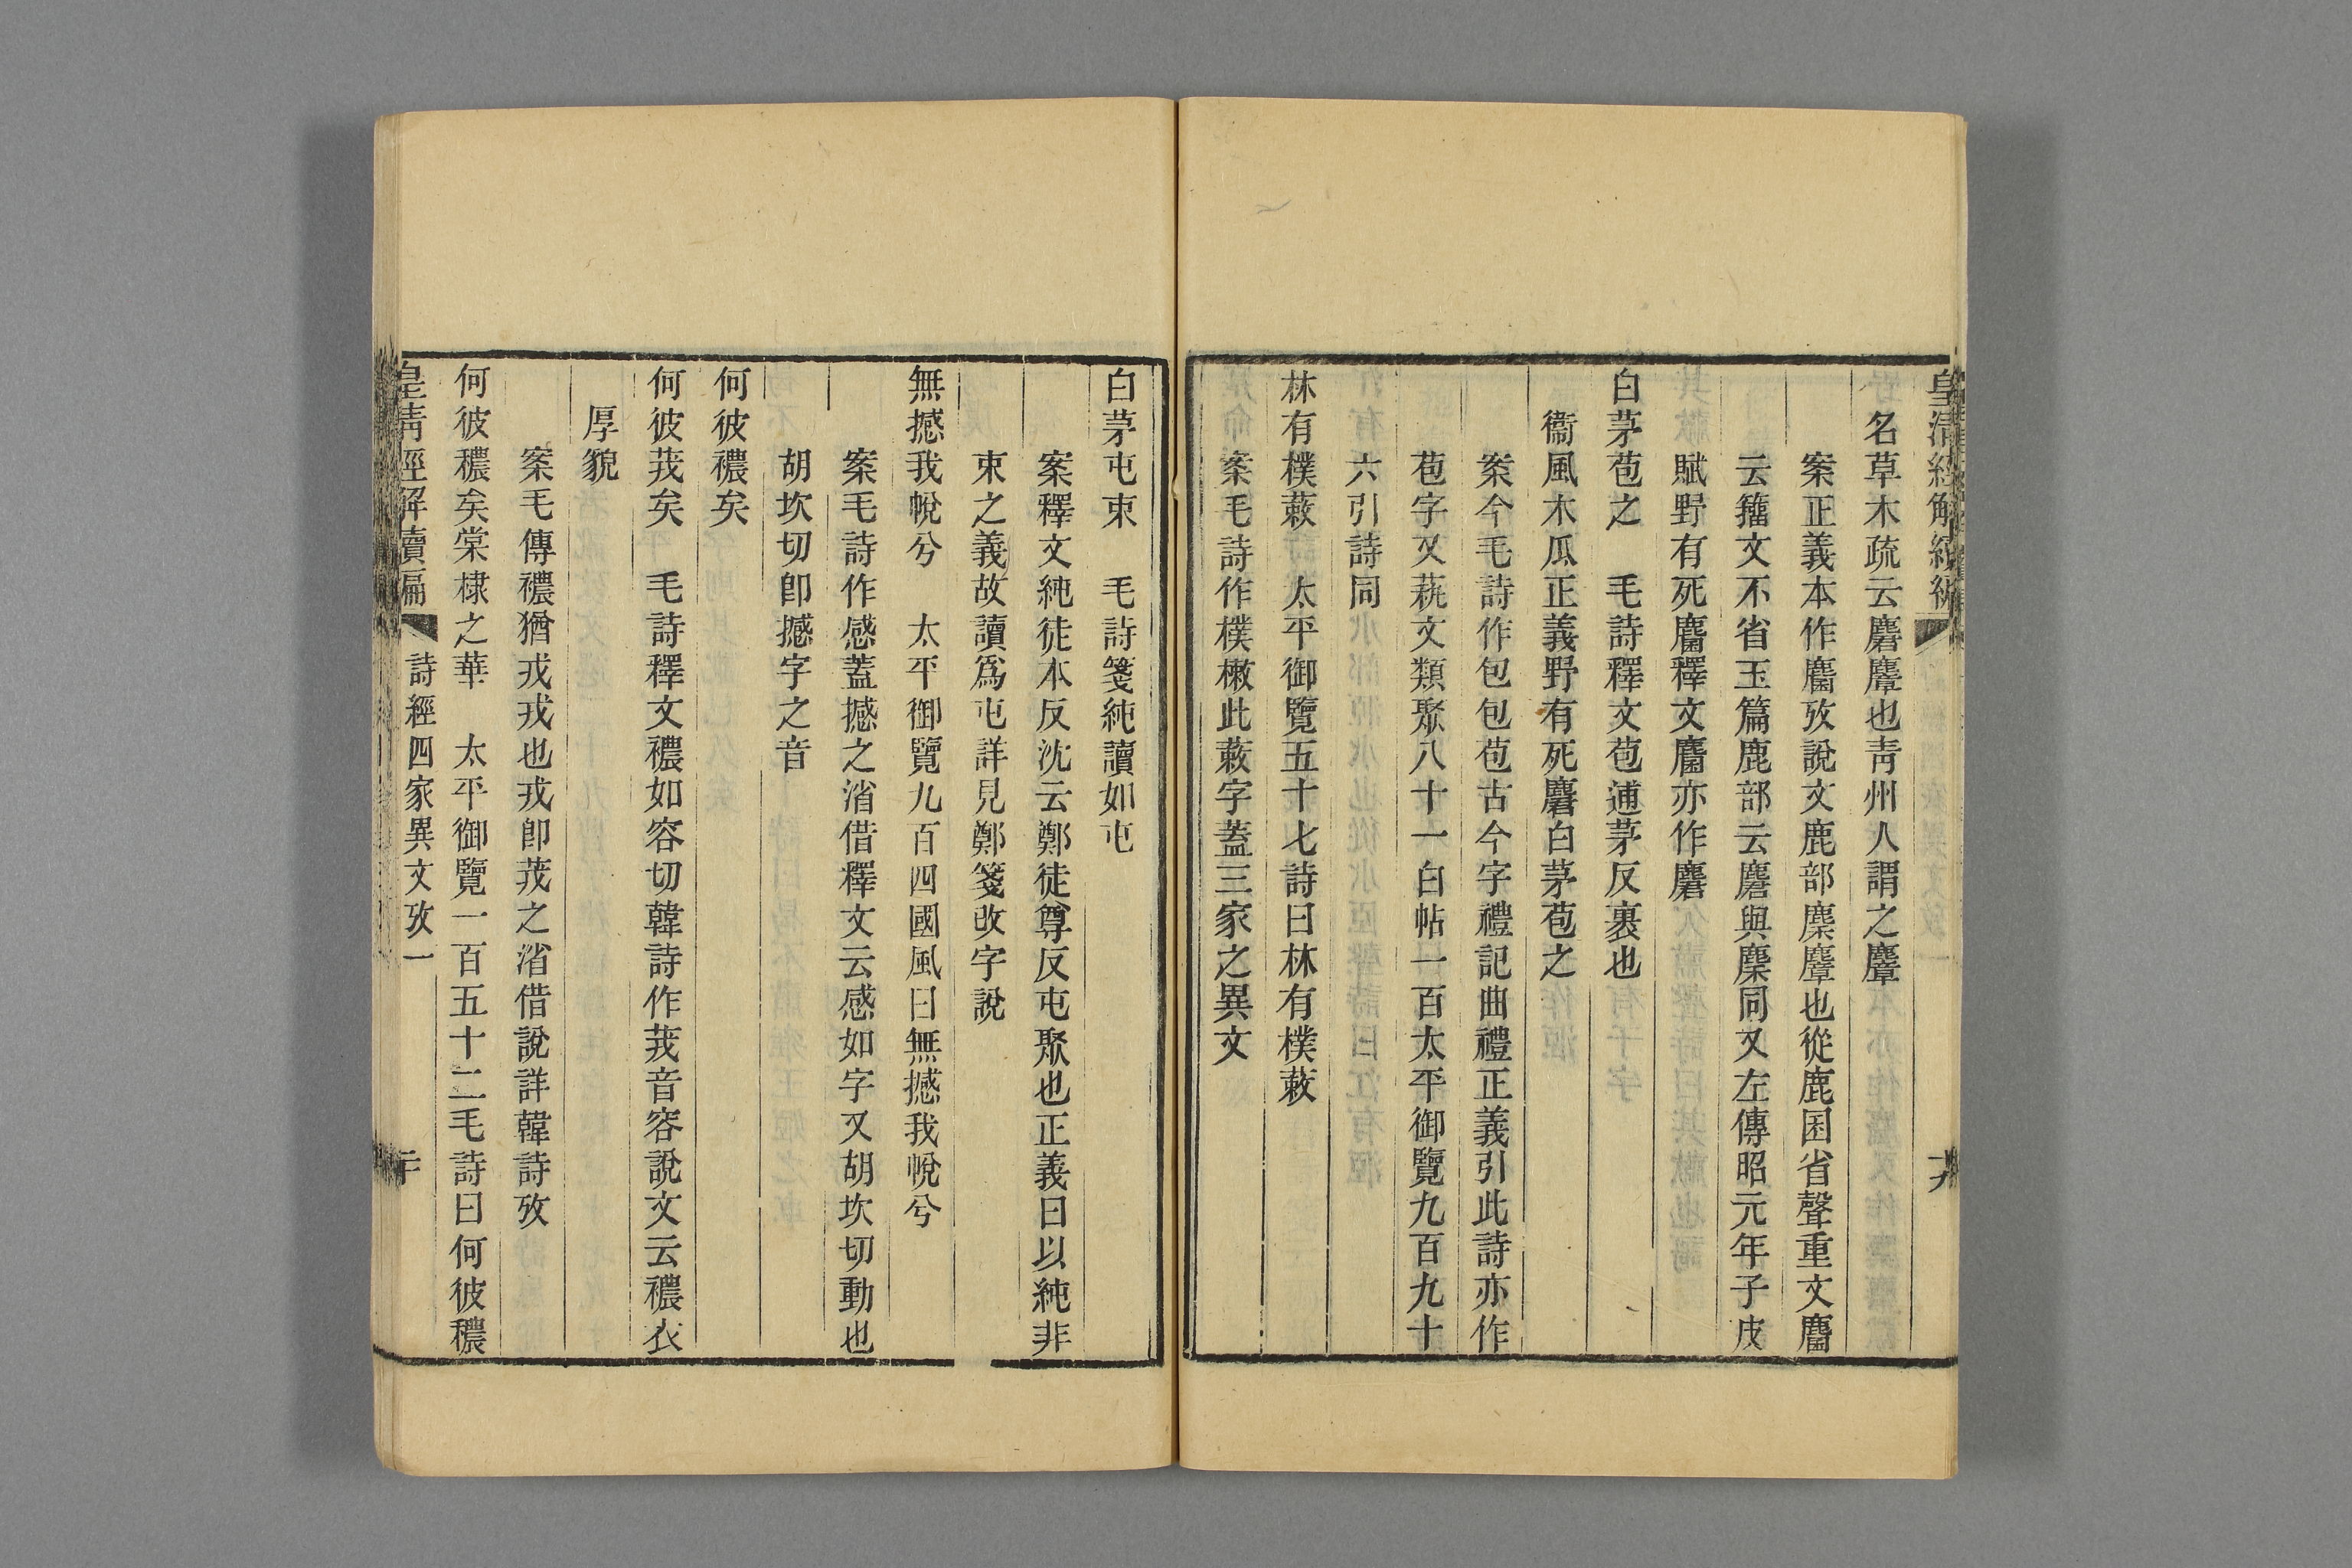 皇清經解續編
十九
名草木疏云麏麞也靑州人謂之麞
案正義本作麕攷說文鹿部麇麞也從鹿囷省聲重文麕
云籒文不省玉篇鹿部云麏與麇同又左傳昭元年子皮
賦野有死麕釋文麕亦作麏
白茅苞之　毛詩釋文苞逋茅反裹也
衞風木瓜正義野有死麏白茅苞之
案今毛詩作包包苞古今字禮記曲禮正義引此詩亦作
苞字又蓺文類聚八十一白帖一百太平御覽九百九十
六引詩同
林有樸蔌　太平御覽五十七詩曰林有樸蔌
案毛詩作樸樕此蔌字蓋三家之異文
白茅屯束　毛詩箋純讀如屯
案釋文純徒本反沈云鄭徒尊反屯聚也正義曰以純非
束之義故讀爲屯詳見鄭箋改字說
無撼我帨兮　太平御覽九百四國風曰無撼我帨兮
案毛詩作感蓋撼之渻借釋文云感如字又胡坎切動也
胡坎切卽撼字之音
何彼襛矣
何彼茙矣　毛詩釋文襛如容切韓詩作茙音容說文云襛衣
厚貌
案毛傳襛猶戎戎也戎卽茙之渻借說詳韓詩攷
何彼穠矣棠棣之華　太平御覽一百五十二毛詩曰何彼穠
皇淸經解續編
詩經四家異文攷一
二十